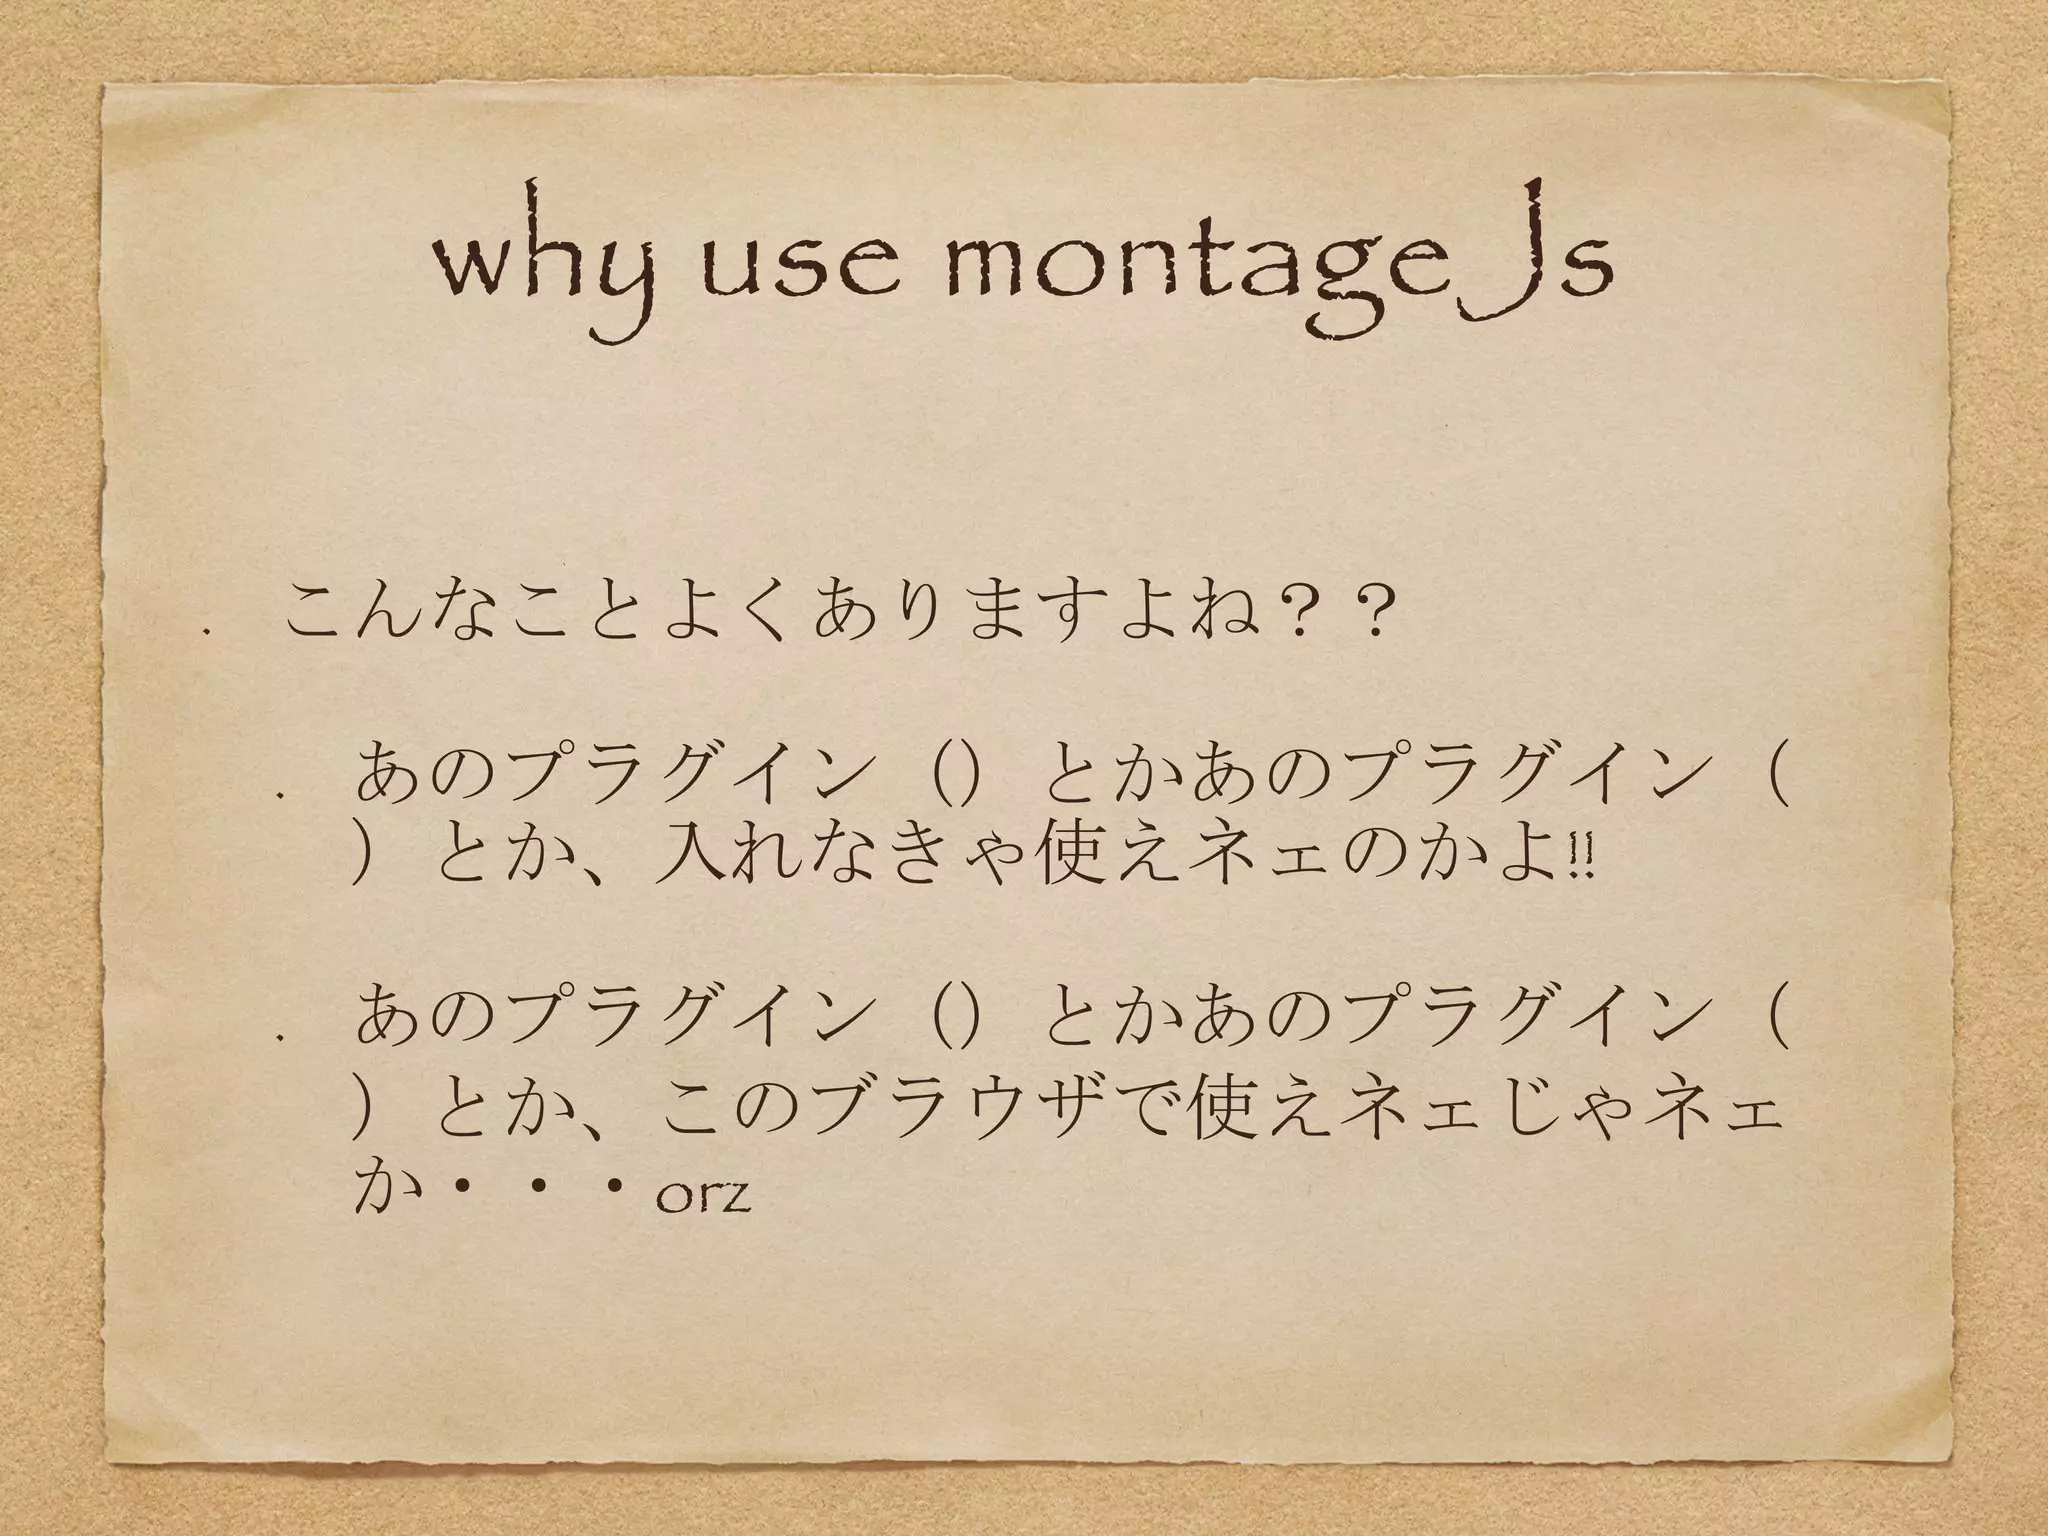 why use montageJs
・ こんなことよくありますよね？？
・ あのプラグイン（）とかあのプラグイン（
）とか、入れなきゃ使えネェのかよ!!
・ あのプラグイン（）とかあのプラグイン（
）とか、このブラウザで使えネェじゃネェ
か・・・orz